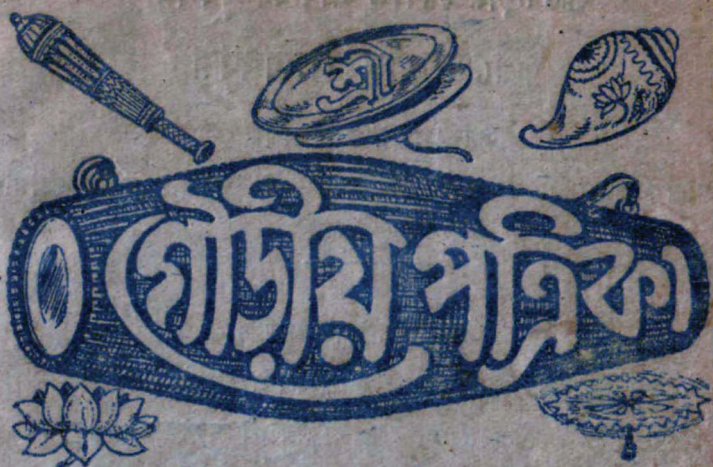 শ্রী
গৌড়ীয় পত্রিকা